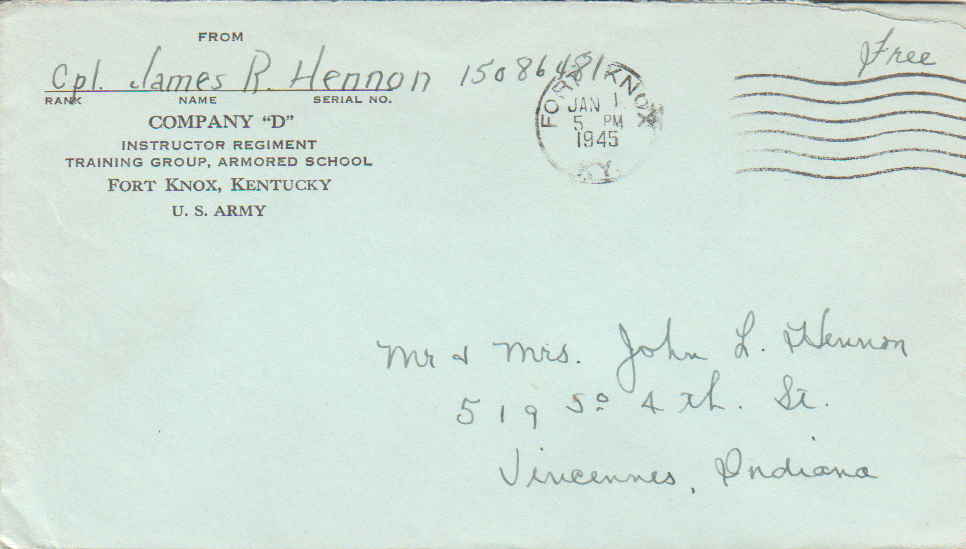 FROM
Cpl. James R. Hennon 15086481
RANK NAME SERIAL NO.
COMPANY "D"
INSTRUCTOR REGIMENT
TRAINING GROUP, ARMORED SCHOOL
FORT KNOX, KENTUCKY
U. S. ARMY
FORT KNOX
JAN 1
5 PM
1945
KY.
Free
Mr & Mrs. John L. Hennon
519 So 4 th. St.
Vincennes, Indiana